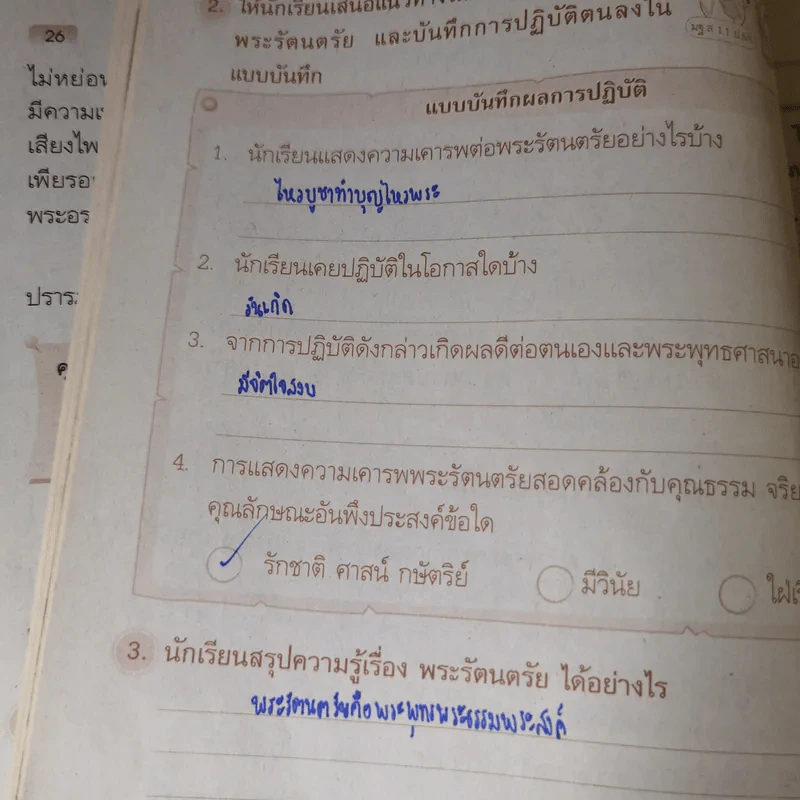 26
ไม่หย่อน
เสียงไพ
เพียรอ
พระอร
ปรารภ
2. ให้นักเรียนเสนอแนวทาง
พระรัตนตรัย และบันทึกการปฏิบัติตนลงใน
แบบบันทึก
มฐ.ส 1.1
แบบบันทึกผลการปฏิบัติ
1. นักเรียนแสดงความเคารพต่อพระรัตนตรัยอย่างไรบ้าง
ไหวบูชาทำบุญไหวพระ
2. นักเรียนเคยปฏิบัติในโอกาสใดบ้าง
วันเกิด
3. จากการปฏิบัติดังกล่าวเกิดผลดีต่อตนเองและพระพุทธศาสนาอ
มีจิตใจสงบ
4. การแสดงความเคารพพระรัตนตรัยสอดคล้องกับคุณธรรม จริย
คุณลักษณะอันพึงประสงค์ข้อใด
รักชาติ ศาสน์ กษัตริย์ มีวินัย ใฝ่เรี
3. นักเรียนสรุปความรู้เรื่อง พระรัตนตรัย ได้อย่างไร
พระรัตนตรัยคือพระพุทธพระธรรมพระสงค์